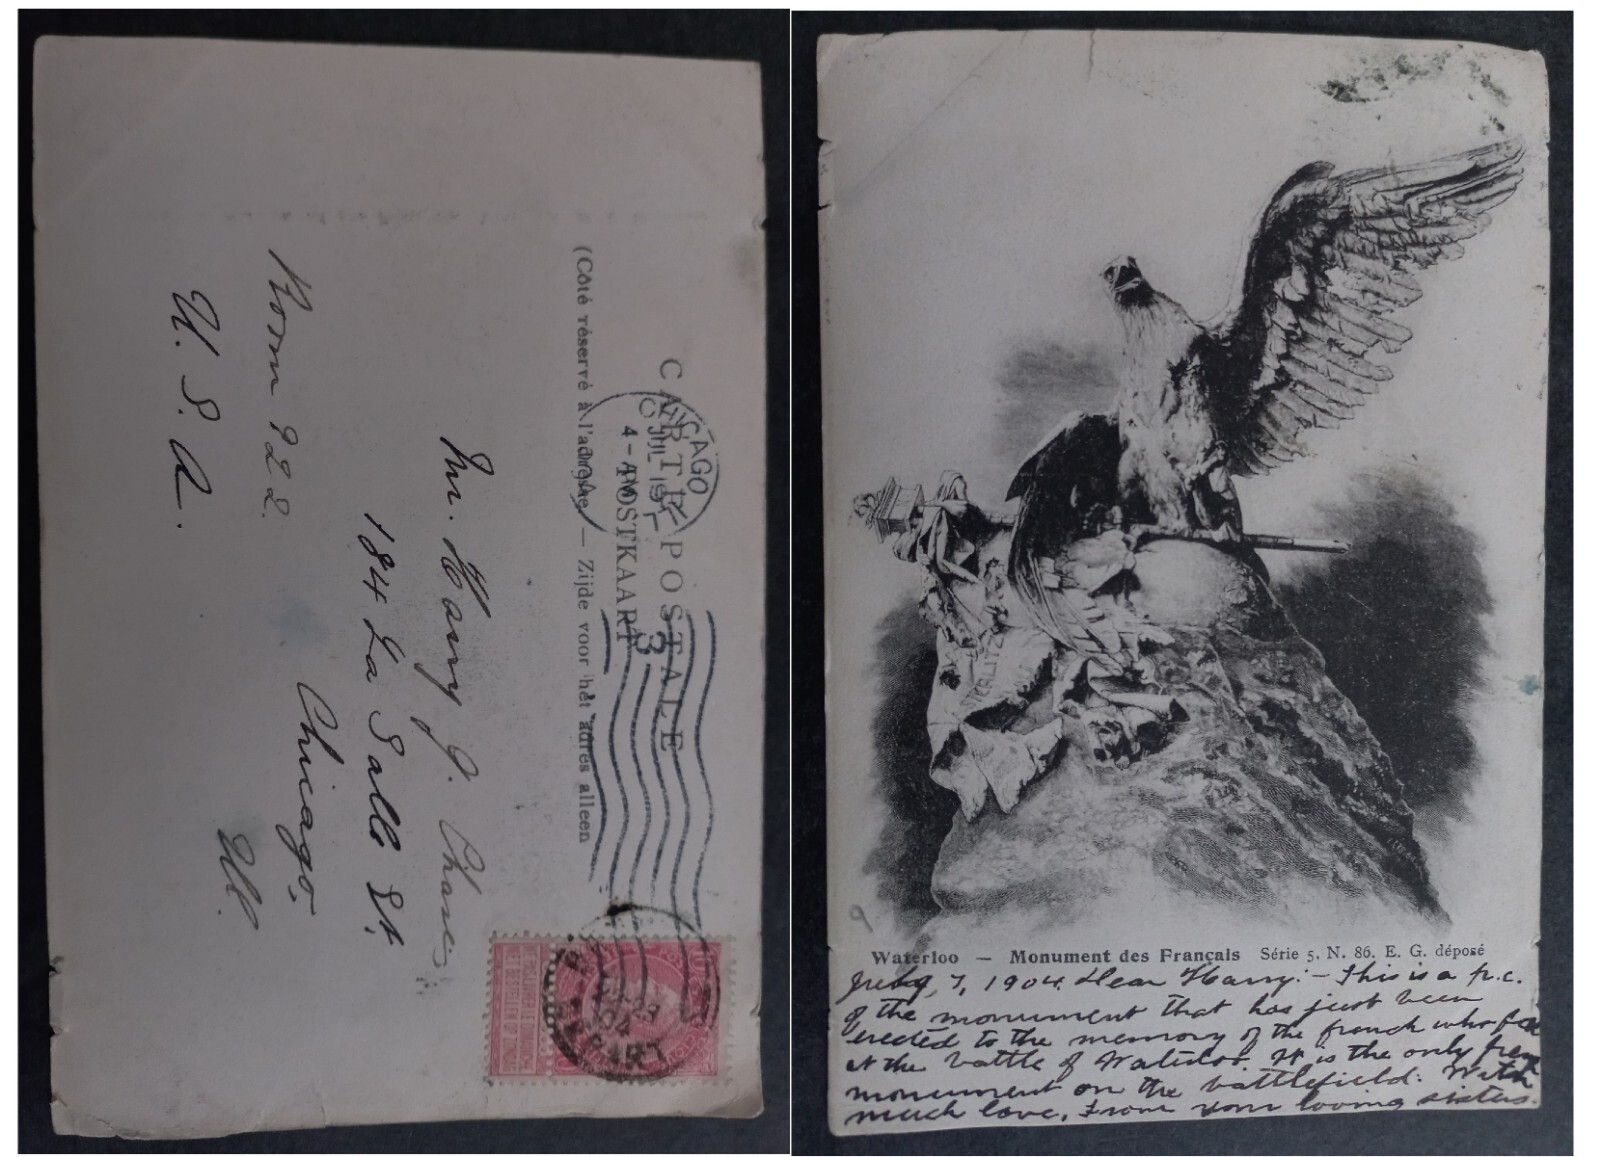 CARTE POSTALE
POSTKAART
(Côté réservé à l'adresse — Zijde voor het adres alleen
CHICAGO
JUL 19
4-AM
3
Mr. Harry J. Chases
184 La Salle St.
Chicago,
Ill.
Room 922.
U. S. A.
Waterloo — Monument des Français Série 5. N. 86. E. G. déposé
July, 7, 1904. Dear Harry:- This is a p.c.
of the monument that has just been
erected to the memory of the french who
at the battle of Waterloo. It is the only
monument on the battlefield. With
much love, From your loving sisters.